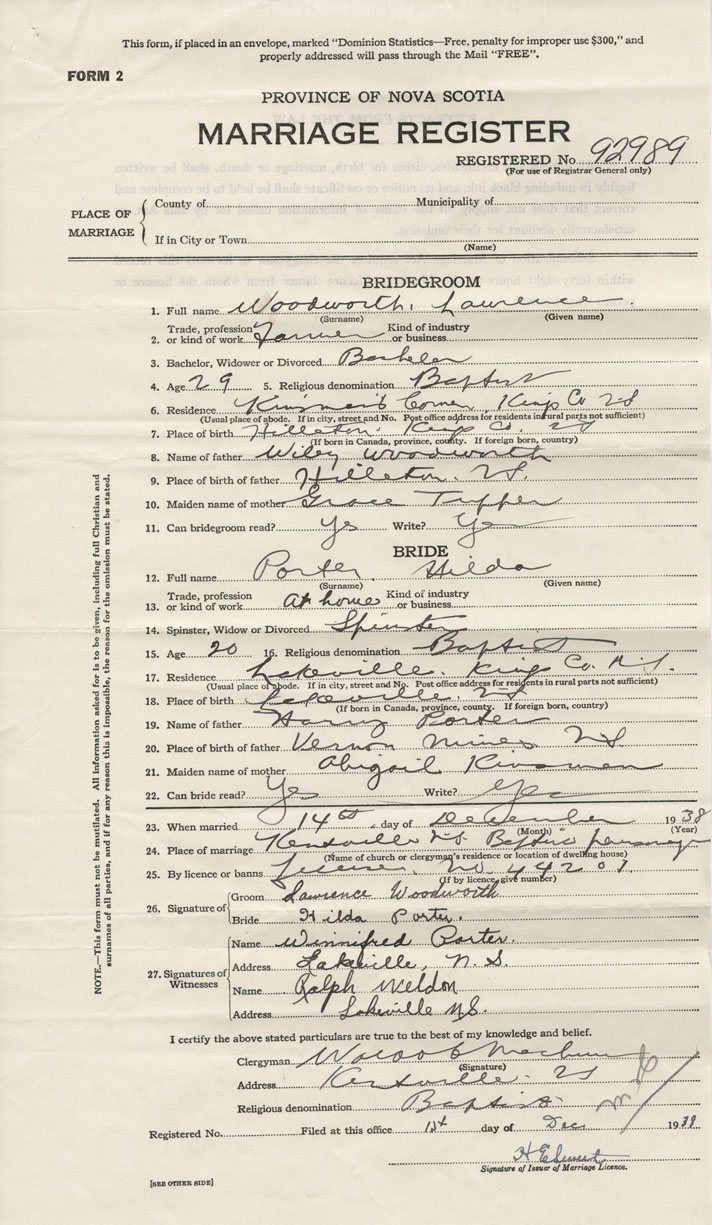 This form, if placed in an envelope, marked "Dominion Statistics—Free, penalty for improper use $300," and
properly addressed will pass through the Mail "FREE".
FORM 2
PROVINCE OF NOVA SCOTIA
MARRIAGE REGISTER
REGISTERED No. 92989
(For use of Registrar General only)
PLACE OF MARRIAGE
County of Municipality of
If in City or Town
(Name)
BRIDEGROOM
1. Full name Woodworth, Lawrence
(Surname) (Given name)
Trade, profession Kind of industry
2. or kind of work Farmer or business
3. Bachelor, Widower or Divorced Bachelor
4. Age 29 5. Religious denomination Baptist
6. Residence Kinsman's Corner, Kings Co NS
(Usual place of abode. If in city, street and No. Post office address for residents in rural parts not sufficient)
7. Place of birth Hilleton, Kings Co. NS
(If born in Canada, province, county. If foreign born, country)
8. Name of father Wiley Woodworth
9. Place of birth of father Hilleton, NS.
10. Maiden name of mother Grace Tupper
11. Can bridegroom read? Yes Write? Yes
BRIDE
12. Full name Porter, Hilda
(Surname) (Given name)
Trade, profession Kind of industry
13. or kind of work At home or business
14. Spinster, Widow or Divorced Spinster
15. Age 20 16. Religious denomination Baptist
17. Residence Lakeville, Kings Co. N.S.
(Usual place of abode. If in city, street and No. Post office address for residents in rural parts not sufficient)
18. Place of birth Lakeville, NS
(If born in Canada, province, county. If foreign born, country)
19. Name of father Harry Porter
20. Place of birth of father Vernon Mines NS
21. Maiden name of mother Abigail Kinsman
22. Can bride read? Yes Write? Yes
23. When married 14th day of December 1938
(Month) (Year)
24. Place of marriage Kentville NS Baptist parsonage
(Name of church or clergyman's residence or location of dwelling house)
25. By licence or banns License, No. 44207
(If by licence, give number)
26. Signature of
Groom Lawrence Woodworth
Bride Hilda Porter.
27. Signatures of Witnesses
Name Winnifred Porter.
Address Lakeville, N.S.
Name Ralph Weldon
Address Lakeville NS.
I certify the above stated particulars are true to the best of my knowledge and belief.
Clergyman
(Signature)
Address Kentville NS
Religious denomination Baptist
Registered No. Filed at this office day of Dec 1938
Signature of Issuer of Marriage Licence.
[SEE OTHER SIDE]
NOTE.—This form must not be mutilated. All information asked for is to be given, including full Christian and
surnames of all parties, and if for any reason this is impossible, the reason for the omission must be stated.